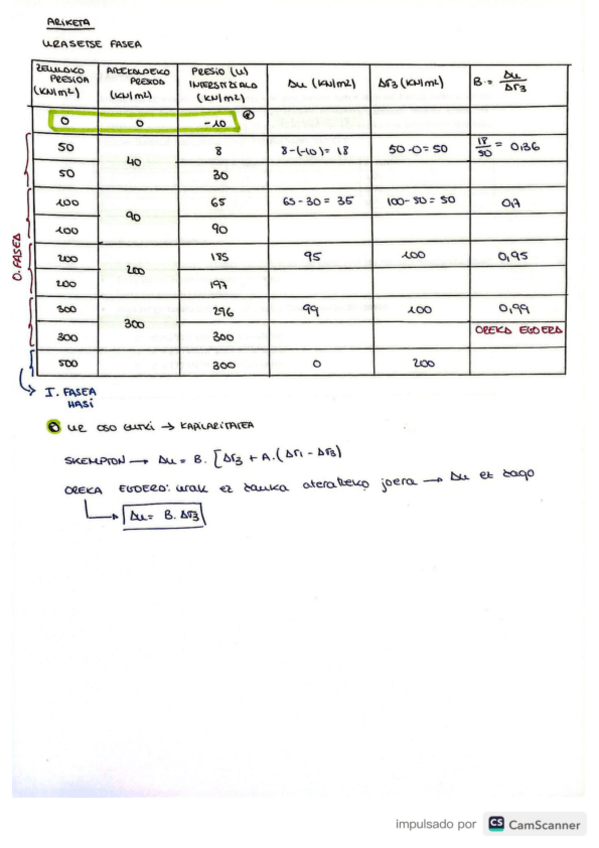 ARIKETA
URASETSE FASEA
ZELULAKO PRESIOA (KN/m2) | ATZEALDEKO PRESIOA (KN/m2) | PRESIO (U) INTERSTIZIALA (KN/m2) | Δu (KN/m2) | Δσ3 (KN/m2) | B = Δu/Δσ3
0 | 0 | -10 *
50 | 40 | 8 | 8-(-10)= 18 | 50-0=50 | 18/50 = 0,36
50 | 30
100 | 90 | 65 | 65-30 = 35 | 100-50=50 | 0,7
100 | 90
200 | 200 | 185 | 95 | 100 | 0,95
200 | 197
300 | 300 | 296 | 99 | 100 | 0,99
300 | 300 | OREKA EGOERA
500 | 300 | 0 | 200
O. FASEA
→ I. FASEA
HASI
* UR OSO GUTXI → KAPILARITATEA
SKEMPTON → Δu = B. [Δσ3 + A.(Δσ1 - Δσ3)
OREKA EGOERA: urak ez dauka ateratzeko joera → Δu ez dago
→ Δu = B. Δσ3
impulsado por CS CamScanner